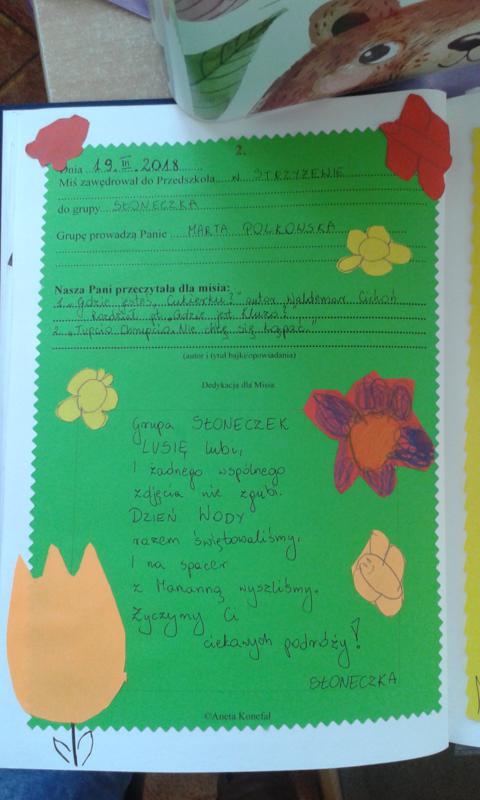 2.
Dnia 19.III.2018
Miś zawędrował do Przedszkola w STRZYŻEWIE
do grupy SŁONECZKA
Grupę prowadzą Panie MARTA POLKOWSKA
Nasza Pani przeczytała dla misia:
1. "Gdzie jesteś, Cukierku?" autor Waldemar Cichoń
rozdział pt. "Gdzie jest Kluza?"
2. "Tupcio Chrupcio. Nie chcę się kąpać."
(autor i tytuł bajki/opowiadania)
Dedykacja dla Misia
Grupa SŁONECZEK
LUSIĘ lubi,
I żadnego wspólnego
zdjęcia nie zgubi.
DZIEŃ WODY
razem świętowaliśmy,
I na spacer
z Marzanną wyszliśmy.
Życzymy Ci
ciekawych podróży!
SŁONECZKA
©Aneta Konefał